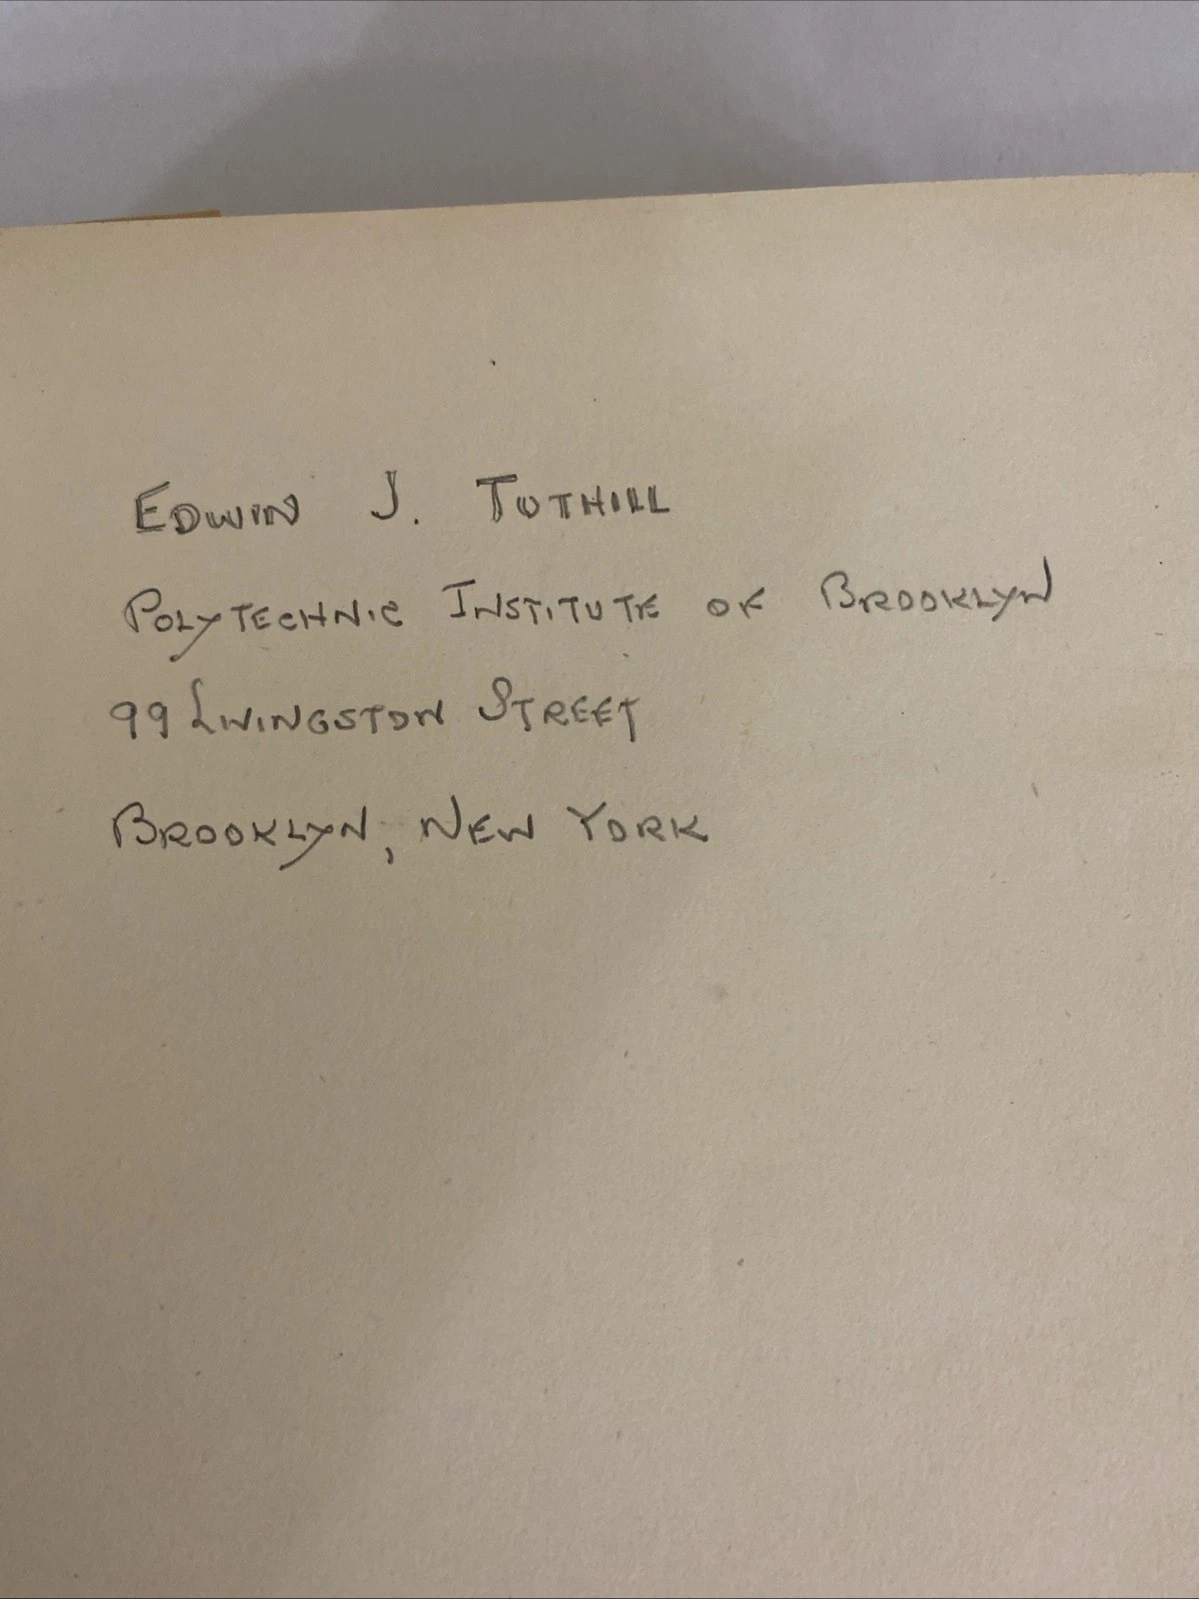 EDWIN J. TUTHILL
POLYTECHNIC INSTITUTE OF BROOKLYN
99 LIVINGSTON STREET
BROOKLYN, NEW YORK